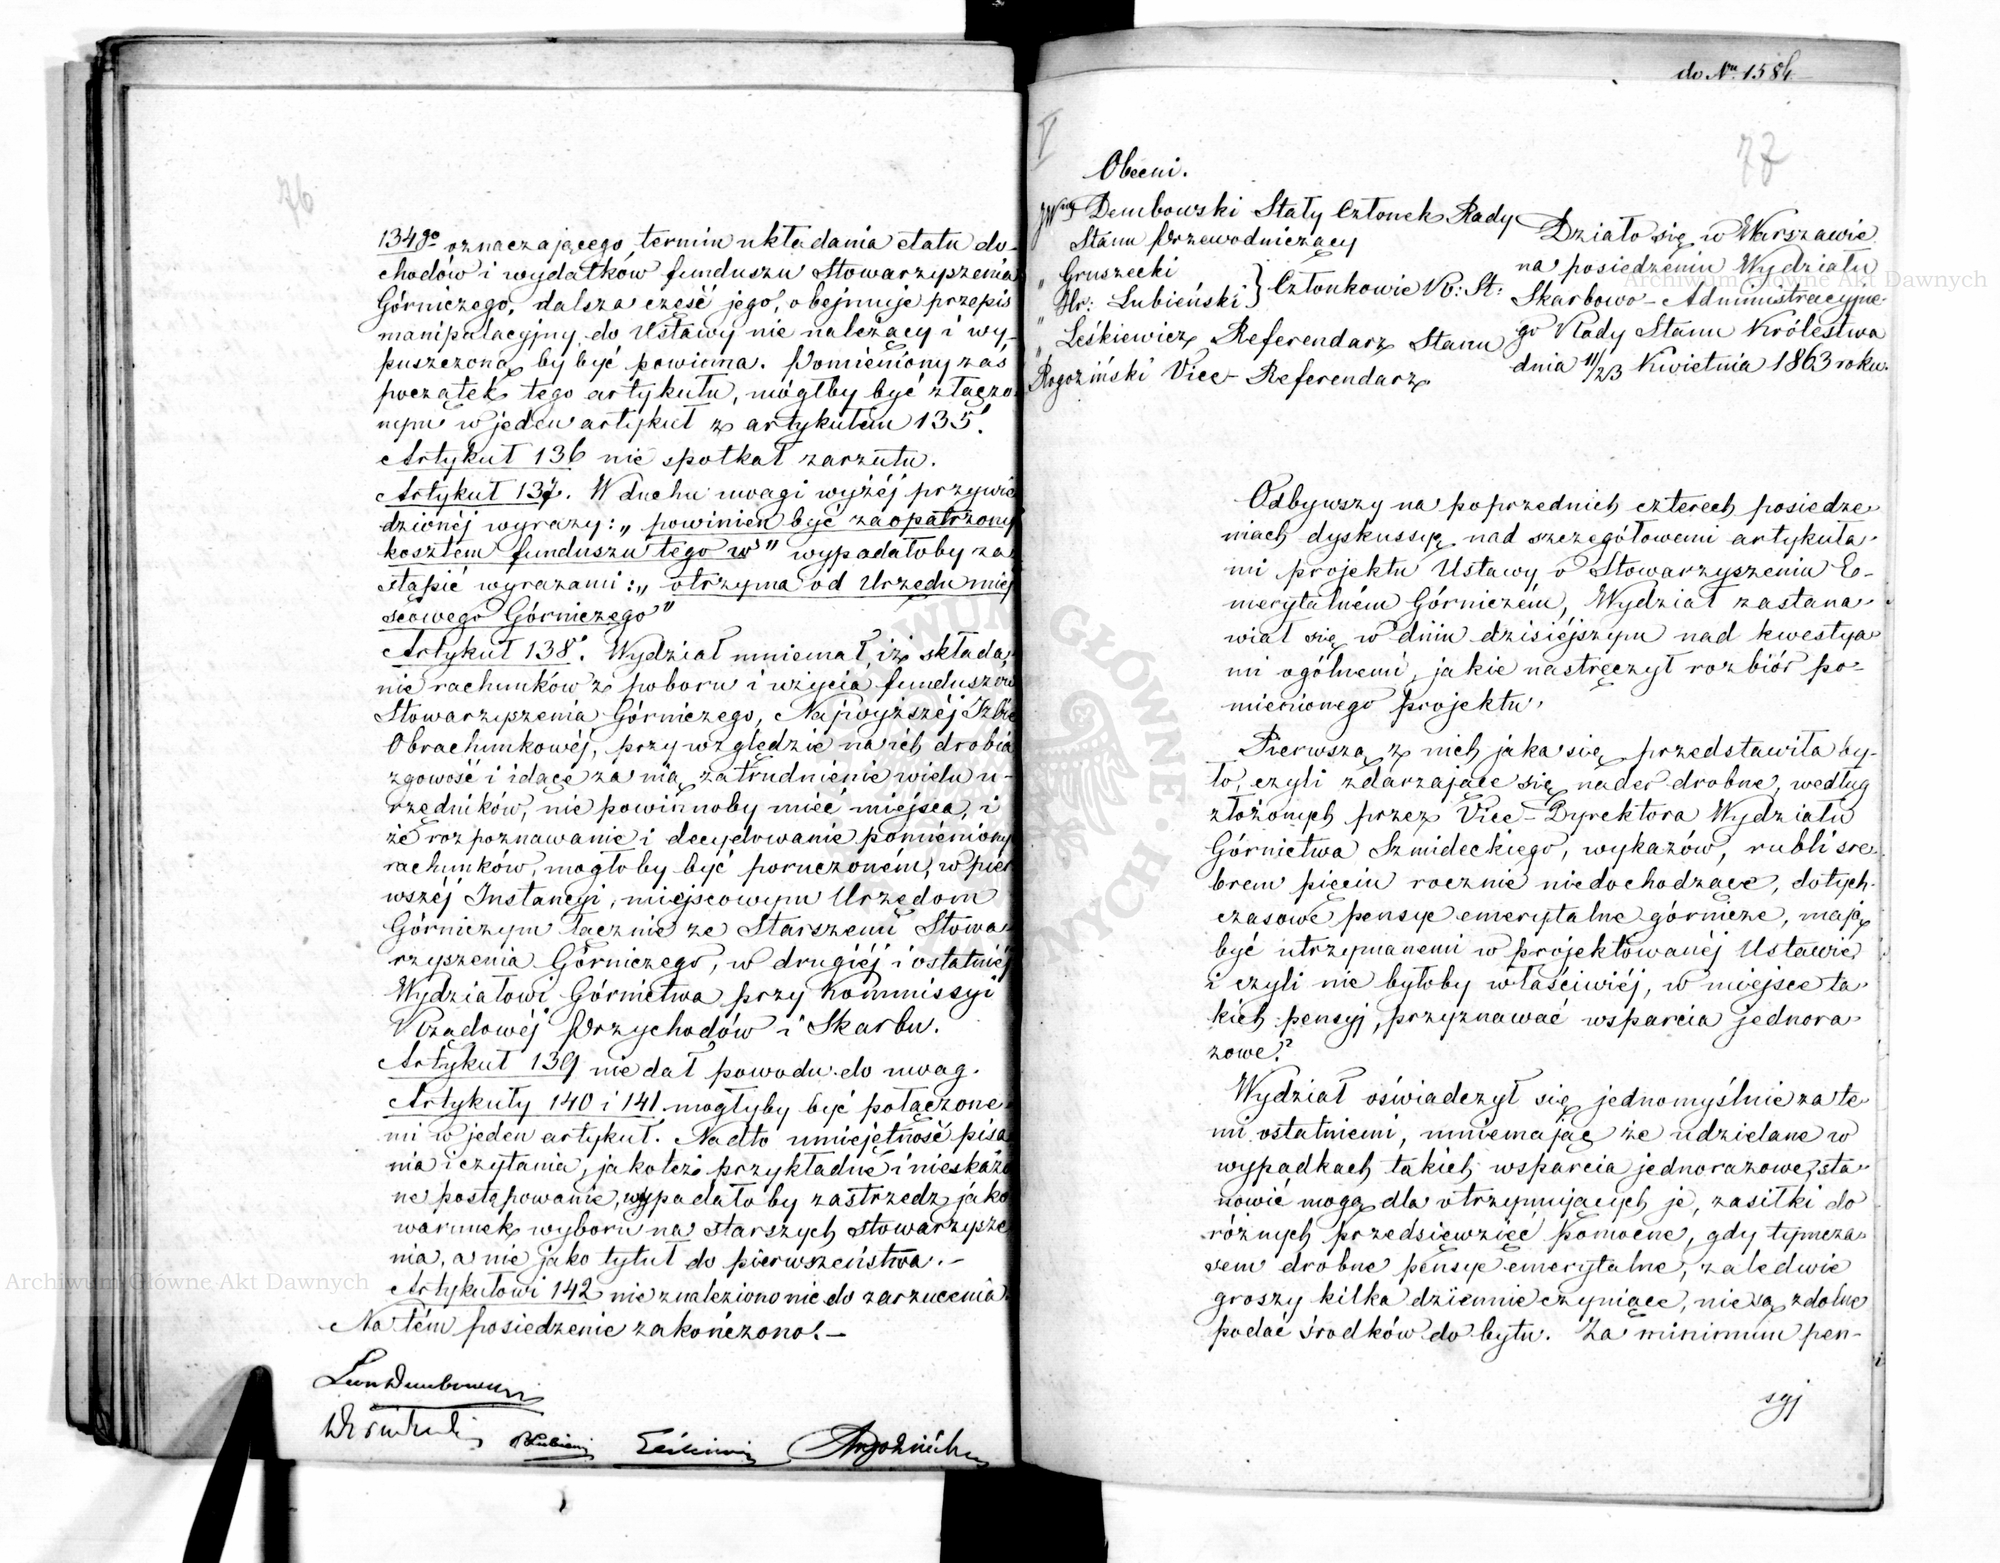 76
134go oznaczającego, termin układania etatu do-
chodów i wydatków funduszu Stowarzyszenia
Górniczego, dalsza część jego, obejmuje przepis
manipulacyjny do Ustawy nie należący i wy-
puszczoną by być powinna. Pomieniony zaś
początek tego artykułu, mógłby być złączo
nym w jeden artykuł z artykułem 135.
Artykuł 136 nie spotkał zarzutu.
Artykuł 137. W duchu uwagi wyżéj przywie
dzionéj wyrazy: „powinien być zaopatrzony
kosztem funduszu tego w" wypadałoby za
stąpić wyrazami: „otrzyma od Urzędu miej
scowego Górniczego"
Artykuł 138. Wydział mniemał, iż składa
nie rachunków z poboru i użycia funduszów
Stowarzyszenia Górniczego, Najwyższéj Izbie
Obrachunkowéj, przy względzie na ich drobia
zgowość i idące za nią zatrudnienie wielu u-
rzędników, nie powinnoby mieć miejsca, i
że rozpoznawanie i decydowanie pomieniony
rachunków, mogłoby być poruczoném, w pier
wszéj Instancyi, miejscowym Urzędom
Górniczym łącznie ze Starszemi Stowa-
rzyszenia Górniczego, w drugiéj i ostatniéj
Wydziałowi Górnictwa przy Kommissyi
Rządowéj Przychodów i Skarbu.
Artykuł 139 nie dał powodu do uwag.
Artykuły 140 i 141 mogłyby być połączone-
mi w jeden artykuł. Nadto umiejętność pisa
nia i czytania, jakoteż przykładne i nieskażo
ne postępowanie, wypadałoby zastrzedz jako
warunek wyboru na starszych Stowarzysze
nia, a nie jako tytuł do pierwszeństwa.-
Artykułowi 142 nie znaleziono nic do zarzucenia.
Na tém posiedzenie zakończono.-
Leon Dembowski
Łubieński
Leśkiewicz
Rogoziński
do Nru 1584
V
77
Obecni.
JWny Dembowski Stały Członek Rady
Stanu Przewodniczący
" Gruszecki
" Hr: Łubieński } Członkowie R: St:
" Leśkiewicz Referendarz Stanu
Rogoziński Vice-Referendarz
Działo się w Warszawie
na posiedzeniu Wydziału
Skarbowo-Administracyjne-
go Rady Stanu Królestwa
dnia 11/23 Kwietnia 1863 roku.
Odbywszy na poprzednich czterech posiedze-
niach dyskussyę nad szczegółowemi artykuła-
mi projektu Ustawy o Stowarzyszeniu E-
merytalném Górniczém, Wydział zastana-
wiał się w dniu dzisiéjszym nad kwestya-
mi ogólnemi, jakie nastręczył rozbiór po-
mienionego projektu.
Pierwszą z nich jaka się przedstawiła by-
ło, czyli zdarzające się nader drobne, według
złożonych przez Vice-Dyrektora Wydziału
Górnictwa Szmideckiego, wykazów, rubli sre-
brem pięciu rocznie niedochodzące, dotych-
czasowe pensye emerytalne górnicze, mają
być utrzymanemi w projektowanéj Ustawie
i czyli nie byłoby właściwiéj, w miejsce ta-
kich pensyj, przyznawać wsparcia jednora-
zowe?
Wydział oświadczył się jednomyślnie za te-
mi ostatniemi, mniemając że udzielane w
wypadkach takich wsparcia jednorazowe, sta-
nowić mogą dla otrzymujących je, zasiłki do
różnych przedsięwzięć pomocne, gdy tymcza-
sem drobne pensye emerytalne, zaledwie
groszy kilka dziennie czyniące, nie są zdolne
podać środków do bytu. Za minimum pen-
syj
Archiwum Główne Akt Dawnych
Archiwum Główne Akt Dawnych